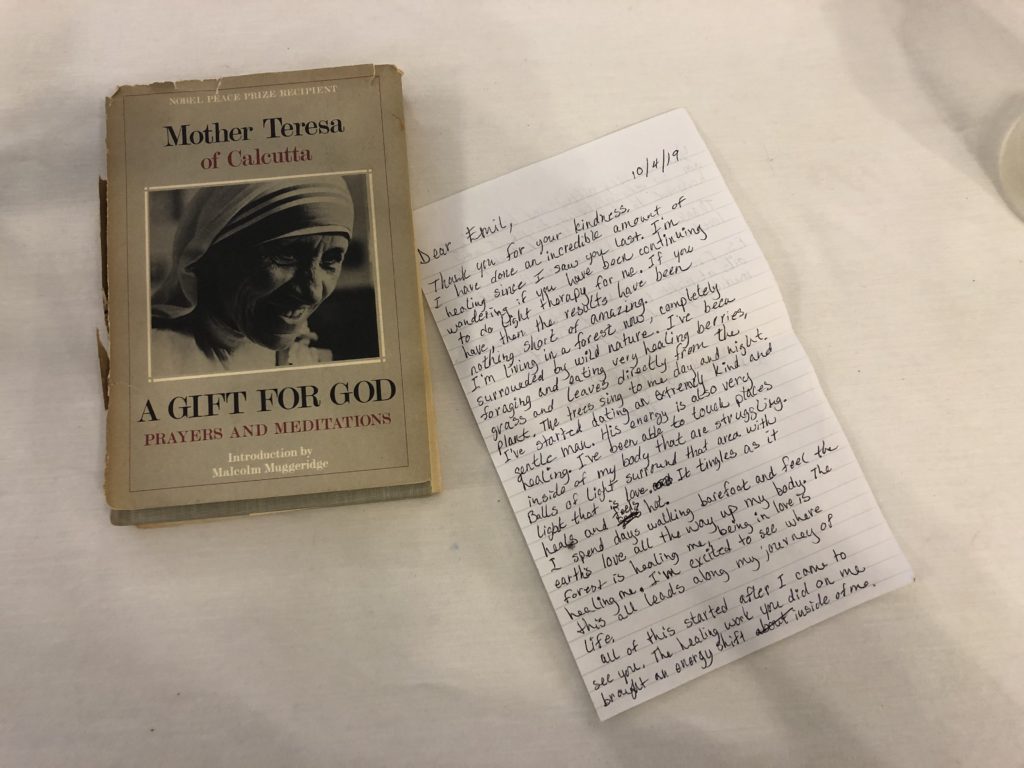 NOBEL PEACE PRIZE RECIPIENT
Mother Teresa
of Calcutta
A GIFT FOR GOD
PRAYERS AND MEDITATIONS
Introduction by
Malcolm Muggeridge
10/4/19
Dear Emil,
Thank you for your kindness.
I have done an incredible amount of
healing since I saw you last. I'm
wondering if you have been continuing
to do light therapy for me. If you
have, than the results have been
nothing short of amazing.
I'm living in a forest now, completely
surrounded by wild nature. I've been
foraging and eating very healing berries,
grass and leaves directly from the
plant. The trees sing to me day and night.
I've started dating an extremely kind and
gentle man. His energy is also very
healing. I've been able to touch places
inside of my body that are struggling.
Balls of light surround that area with
light that is love. It tingles as it
heals and feels hot.
I spend days walking barefoot and feel the
earths love all the way up my body. The
forest is healing me, being in love is
healing me. I'm excited to see where
this all leads along my journey of
life.
all of this started after I came to
see you. The healing work you did on me
brought an energy shift about inside of me.